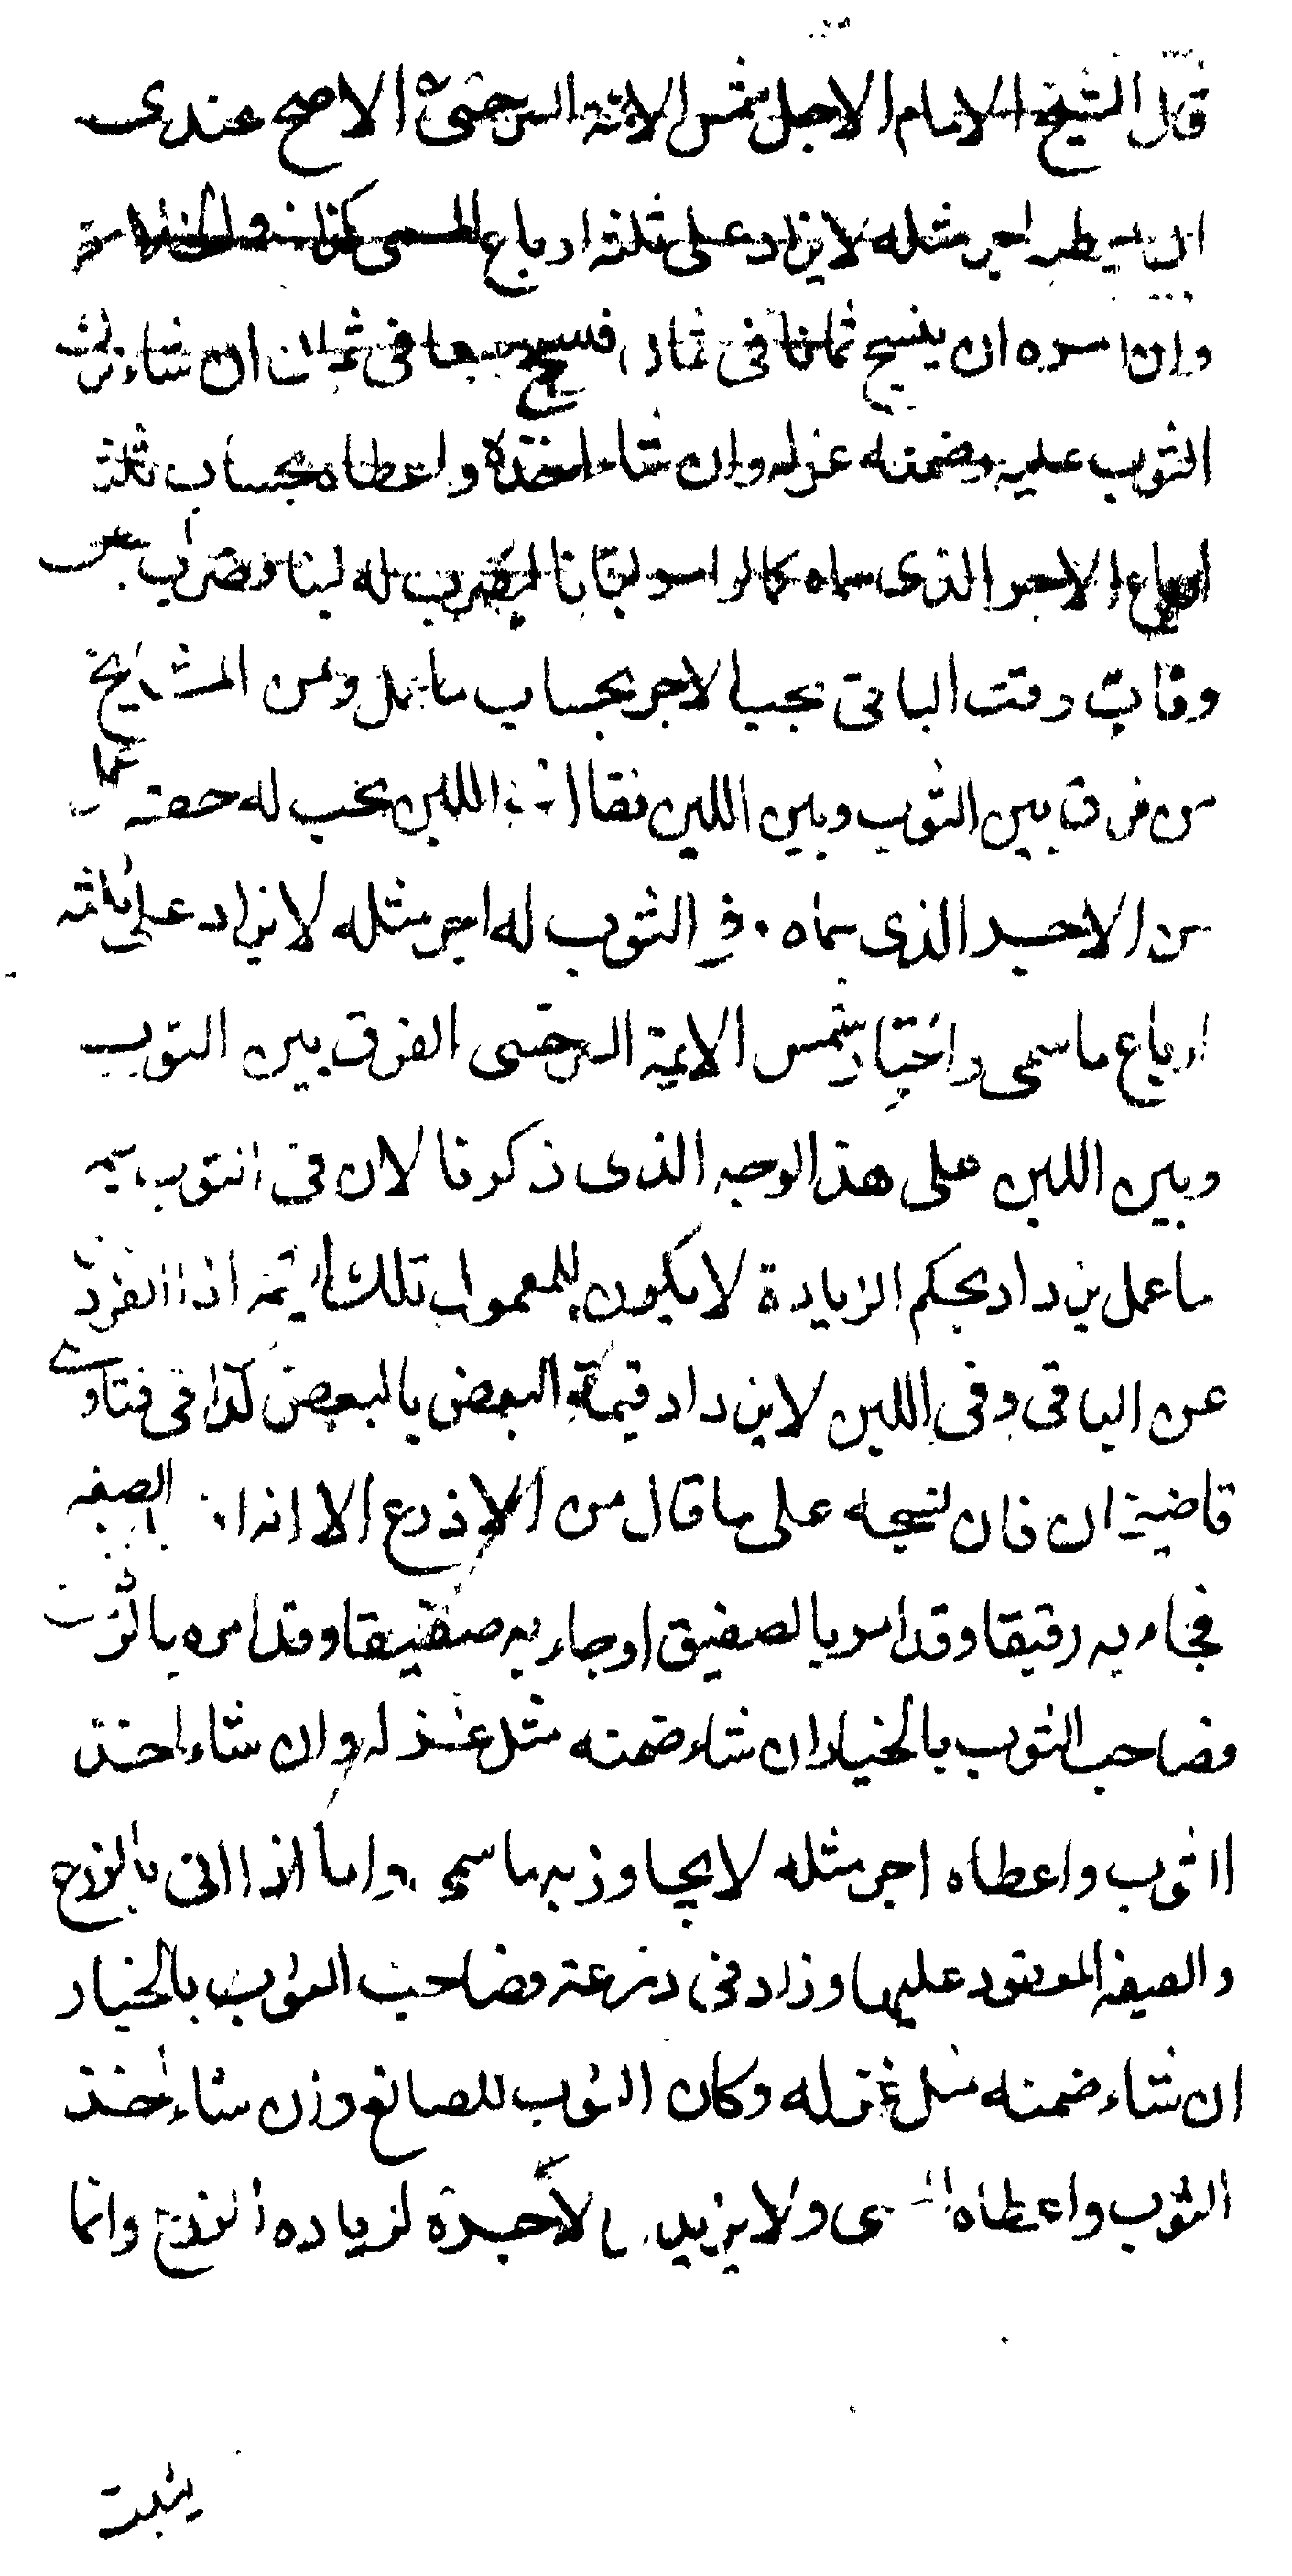 قال الشيخ الامام الاجل شمس الائمة السرخسى الاصح عندى
ان اجر مثله لا يزاد على ثلثة ارباع المسمى كذا فى الخلاصة
وان امره ان ينسج ثمانا فى ثمان فنسج سبعا فى ثمان ان شاء ترك
الثوب عليه وضمنه غزله وان شاء اخذه واعطاه بحساب ثلثة
ارباع الاجر الذى سماه كما لو امر لبانا ليضرب له لبنا وضرب بعض
وفات وقت الباقى يجب الاجر بحساب ما عمل ومن المشايخ
من فرق بين الثوب وبين اللبن فقال فى اللبن يجب له حصته
من الاجر الذى سماه وفى الثوب له اجر مثله لا يزاد على ثلثة
ارباع ما سمى واختيار شمس الايمة السرخسى الفرق بين الثوب
وبين اللبن على هذا الوجه الذى ذكرنا لان فى الثوب قيمة
ما عمل يزداد بحكم الزيادة لا يكون للمعمول تلك القيمة اذا انفرد
عن الباقى وفى اللبن لا يزداد قيمة البعض بالبعض كذا فى فتاوى
قاضيخان فان نسجه على ما قال من الاذرع الا انه الصفة
فجاء به رقيقا وقد امر بالصفيق او جاء به صفيقا وقد امره بالرقيق
فصاحب الثوب بالخيار ان شاء ضمنه مثل غزله وان شاء اخذ
الثوب واعطاه اجر مثله لا يجاوز به ما سمى واما اذا اتى بالذرع
والصفة المعقود عليها وزاد فى ذرعه فصاحب الثوب بالخيار
ان شاء ضمنه مثل غزله وكان الثوب للصانع وان شاء اخذ
الثوب واعطاه المسمى ولا يزيد الاجرة لزيادة الذرع وانما
يثبت